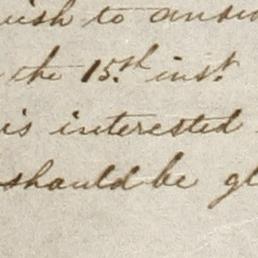 wish to answ
the 15th inst.
is interested
should be gl